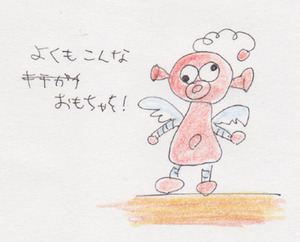 よくもこんな
キチガイ
おもちゃを!